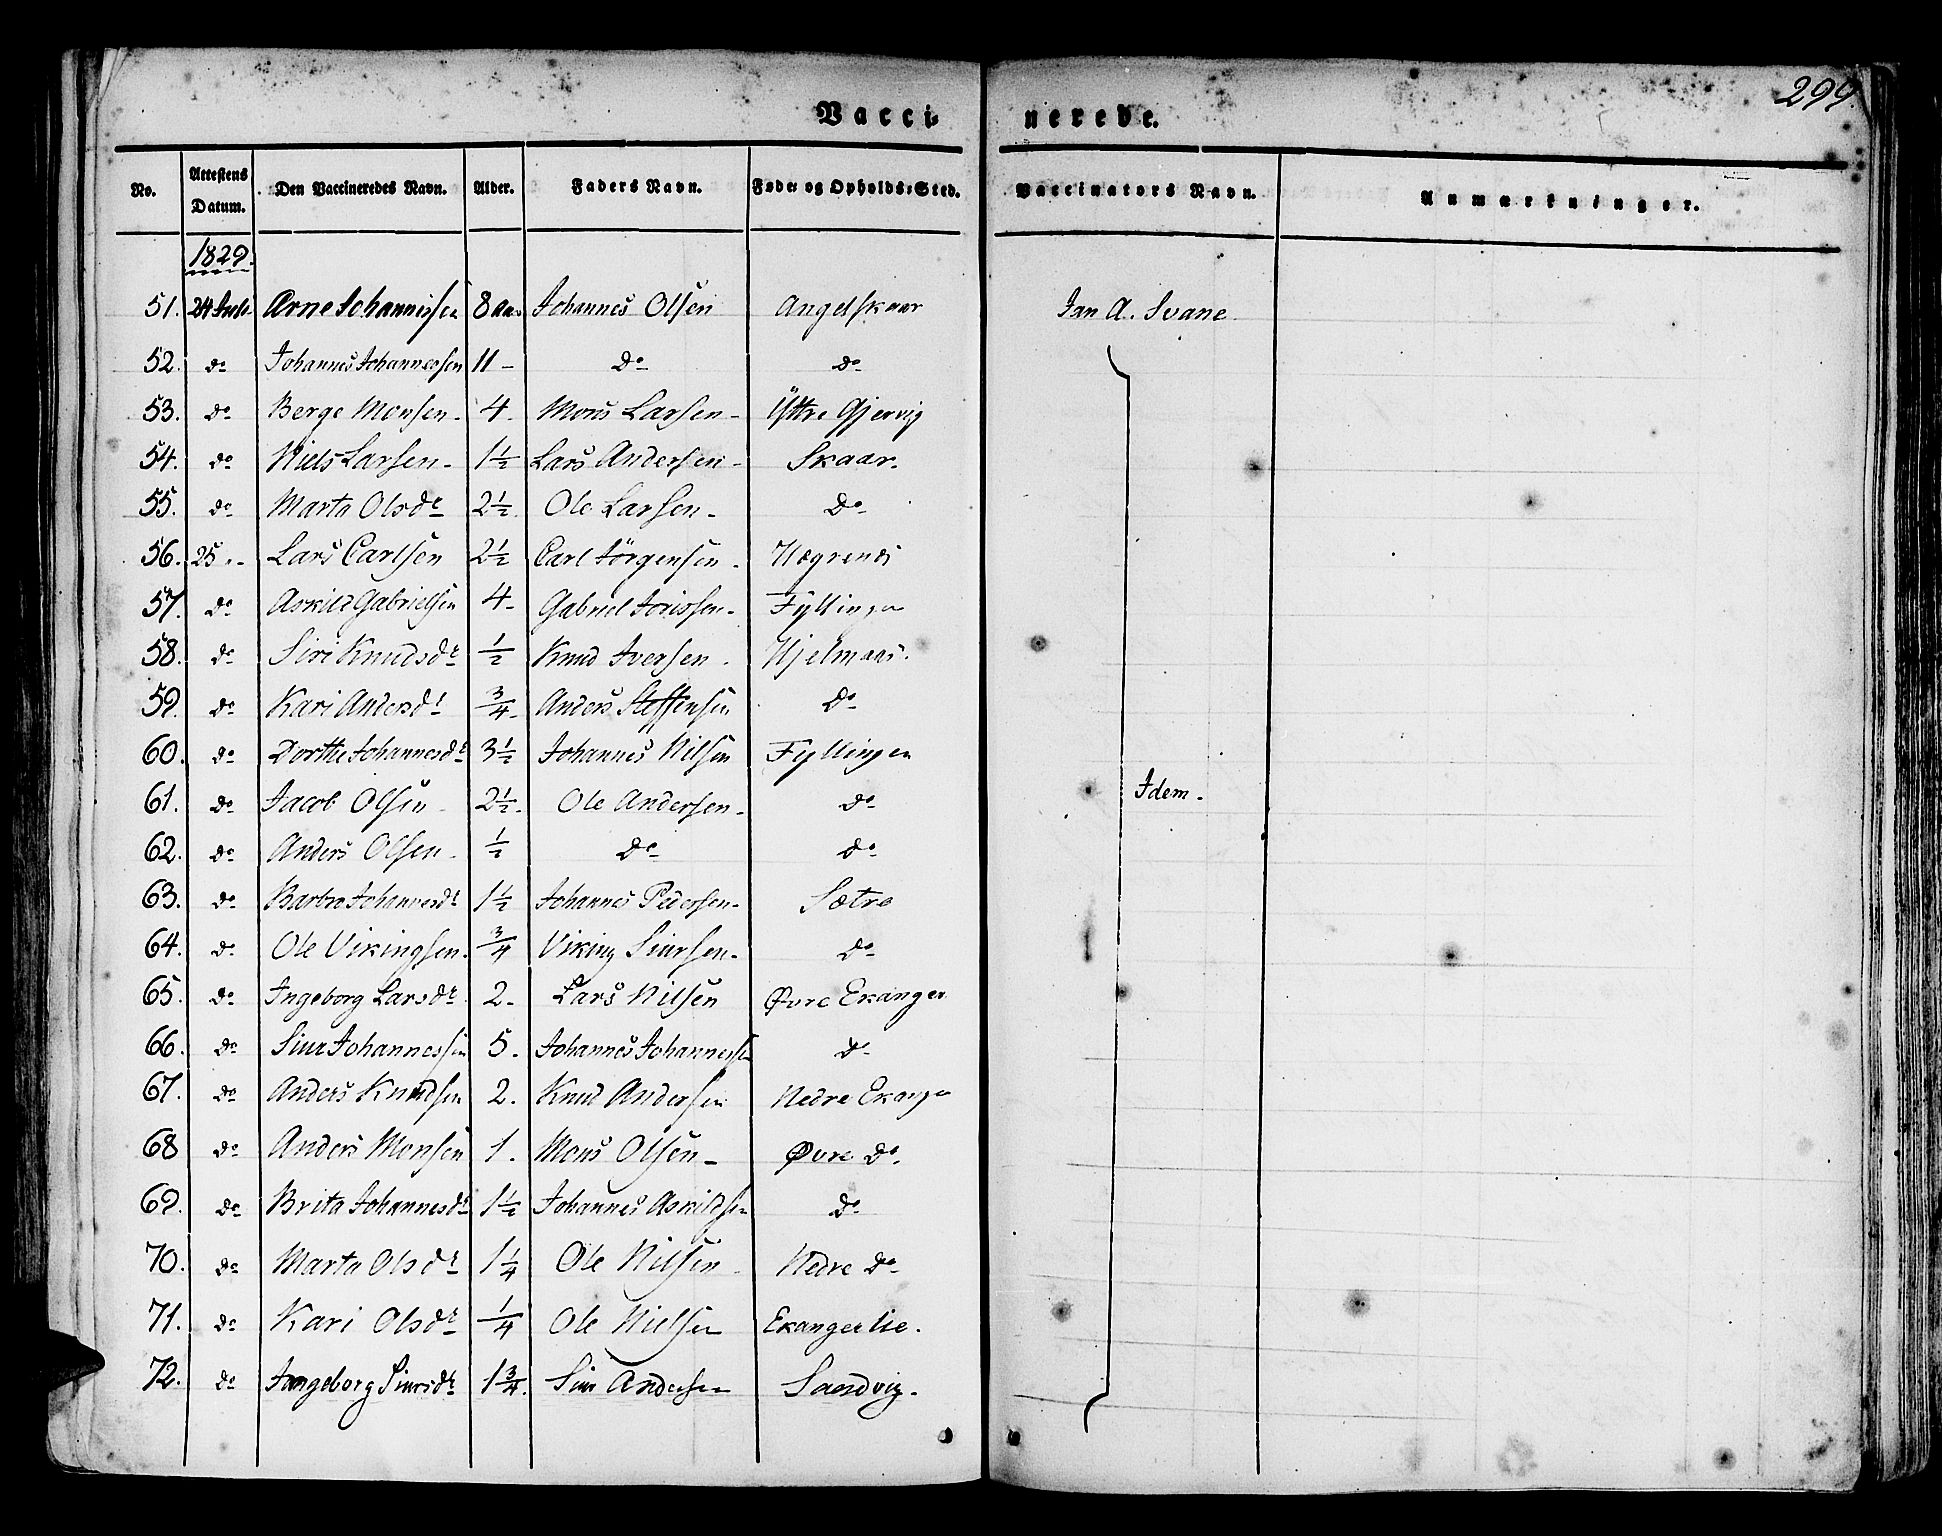 299.
Vacci- nerede.
No. Attestens Datum. Den Vaccineredes Navn. Alder. Faders Navn. Føde- og Opholds-Sted. Vaccinators Navn. Anmærkninger.
1829.
51. 24 Juli Arne Johannessen 8 aar Johannes Olsen Angelskaar Jan A. Svane
52. do Johannes Johannessen 11 - do do
53. do Berge Monsen - 4. Mons Larsen - Yttre Gjervig
54. do Niels Larsen - 1½ Lars Andersen - Skaar.
55. do Marta Olsdr 2½. Ole Larsen - do
56. 25 " - Lars Carlsen 2½ Carl Jörgensen - Høgrends
57. do Askild Gabrielsen 4 - Gabriel Jonssen - Fyllingen
58. do Siri Knudsdr ½ Knud Iversen - Hjelmaas.
59. do Kari Andersdr ¾ - Anders Steffensen do
60. do Dorthe Johannesdr 3½ Johannes Nilsen Fyllingen
61. do Jacob Olsen - 2½. Ole Andersen - do Idem.
62. do Anders Olsen - ½ do do
63. do Barbro Johannesdr 1½ Johannes Pedersen - Sætre
64. do Ole Vikingsen. ¾ Viking Siursen - do
65. do Ingeborg Larsdr 2. Lars Nilsen Øvre Ekanger
66. do Siur Johannessen 5. Johannes Johannessen do
67. do Anders Knudsen 2. Knud Andersen Nedre Ekanger
68 do Anders Monsen 1. Mons Olsen - Øvre do.
69. do Brita Johannesdr 1½ Johannes Askildsen do
70. do Marta Olsdr 1¼ Ole Nilsen - Nedre do
71. do Kari Olsdr ¼ Ole Nielsen Ekangerlie.
72. do Ingeborg Siursdr 1¾. Siur Andersen Sandvig.